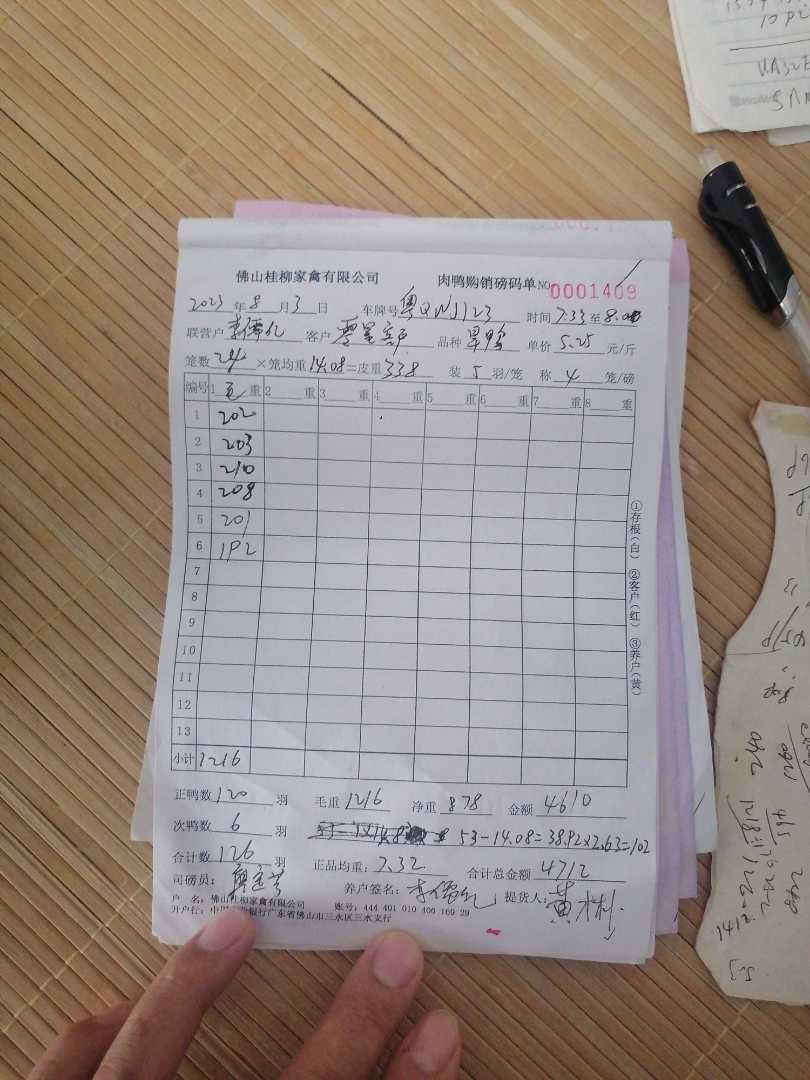 佛山桂柳家禽有限公司 肉鸭购销磅码单 NO 0001409
2023年8月3日 车牌号 粤QWJ123 时间 7:33至8:00
联营户 李儒亿 客户 零星客户 品种 旱鸭 单价 5.25 元/斤
笼数 24 ×笼均重 14.08=皮重 338 装 5 羽/笼 称 4 笼/磅
编号 1毛重 2 重 3 重 4 重 5 重 6 重 7 重 8 重
1 202
2 203
3 210
4 208
5 201
6 192
7
8
9
10
11
12
13
小计 1216
①存根(白) ②客户(红) ③养户(黄)
正鸭数 120 羽 毛重 1216 净重 878 金额 4610
次鸭数 6 羽 53-14.08=38.92×2.63=102
合计数 126 羽 正品均重: 7.32 合计总金额 4712
司磅员: 养户签名: 李儒亿 提货人: 黄水料
户 名: 佛山桂柳家禽有限公司 账号: 444 401 010 400 169 29
开户行: 中国 银行广东省佛山市三水区三水支行